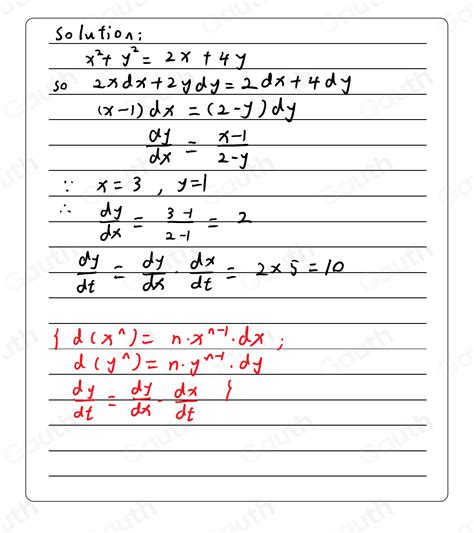 Solution:
x²+ y² = 2x + 4y
so 2xdx+2ydy=2dx+4dy
(x-1)dx = (2-y)dy
dy/dx = x-1/2-y
∵ x=3 , y=1
∴ dy/dx = 3-1/2-1 = 2
dy/dt = dy/dx · dx/dt = 2×5=10
{ d(xⁿ)= n·xⁿ⁻¹·dx ;
d(yⁿ)= n·yⁿ⁻¹·dy
dy/dt = dy/dx · dx/dt }
Gauth